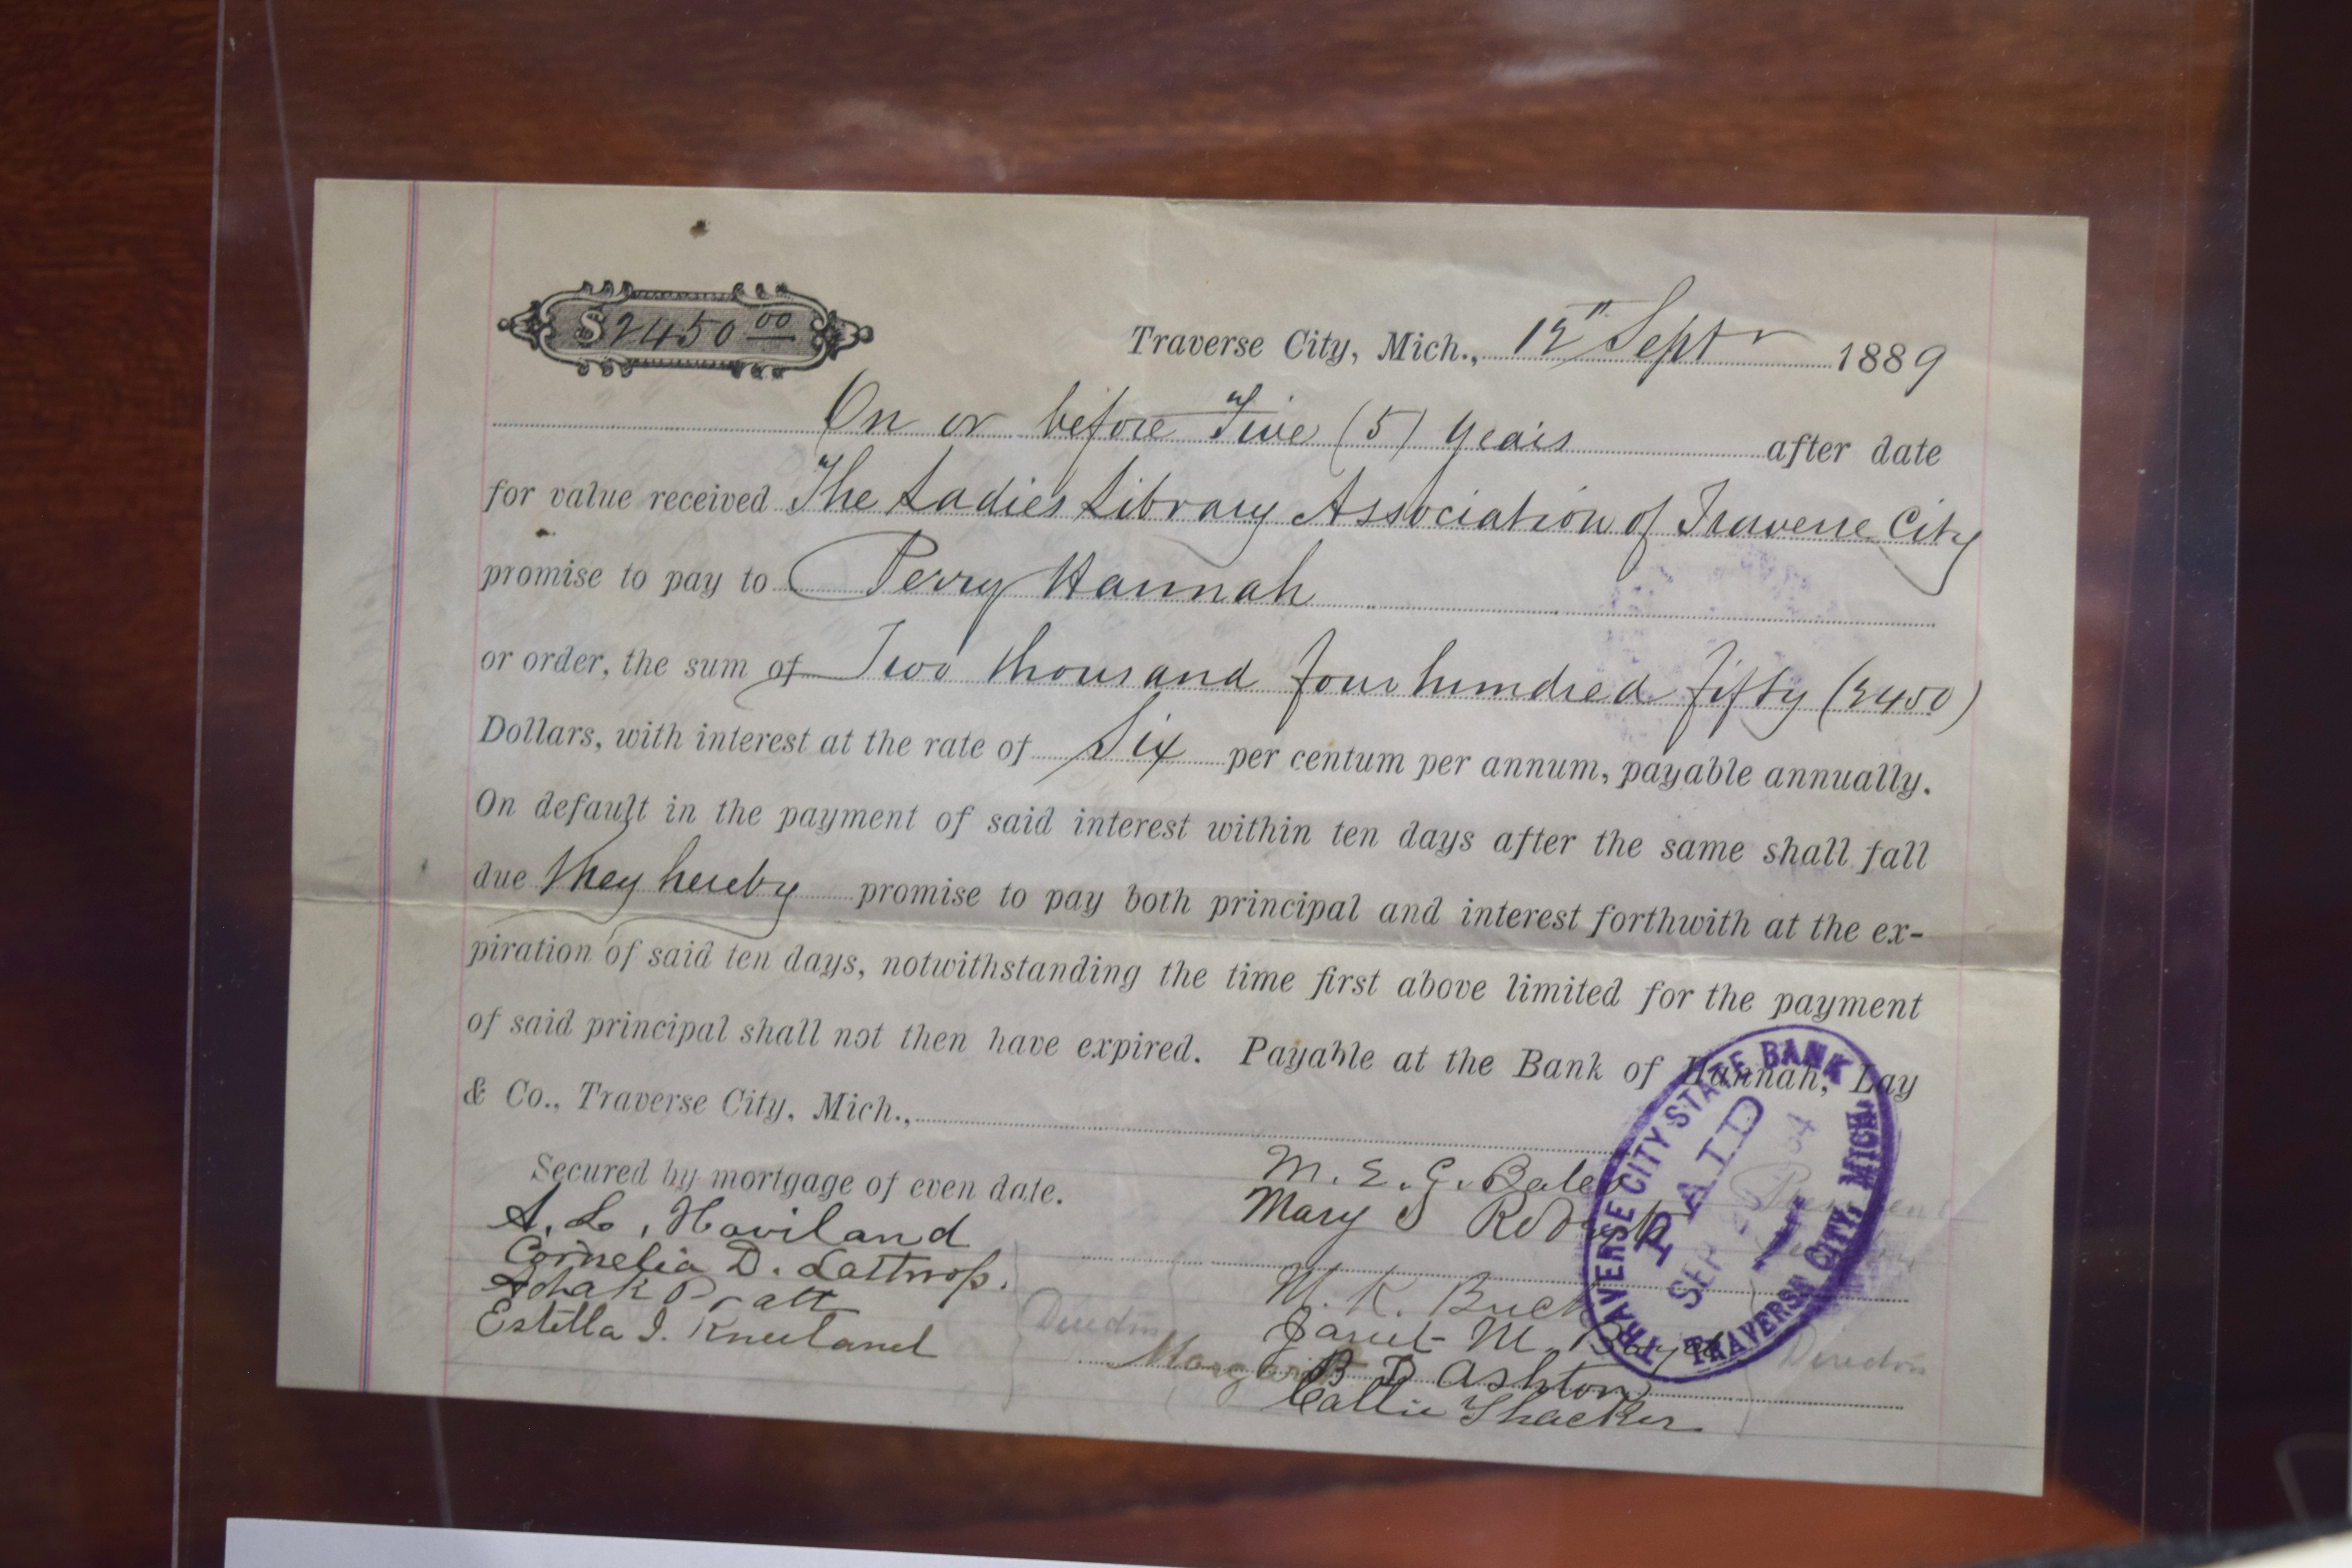 $2450 00
Traverse City, Mich., 12th Septr 1889
On or before Five (5) years after date
for value received The Ladies Library Association of Traverse City
promise to pay to Perry Hannah
or order, the sum of Two thousand four hundred fifty (2450)
Dollars, with interest at the rate of Six per centum per annum, payable annually.
On default in the payment of said interest within ten days after the same shall fall
due they hereby promise to pay both principal and interest forthwith at the ex-
piration of said ten days, notwithstanding the time first above limited for the payment
of said principal shall not then have expired. Payable at the Bank of Hannah, Lay
& Co., Traverse City, Mich.,
Secured by mortgage of even date.
A. L. Haviland
Cornelia D. Lathrop.
Ada K Pratt
Estella I. Kneeland
Directors
M. E. C. Bates
President
Mary S
M. K. Buck
Janet M.
Margaret
B D Ashton
Callie Thacker
Directors
TRAVERSE CITY STATE BANK
PAID
SEP
TRAVERSE CITY, MICH.